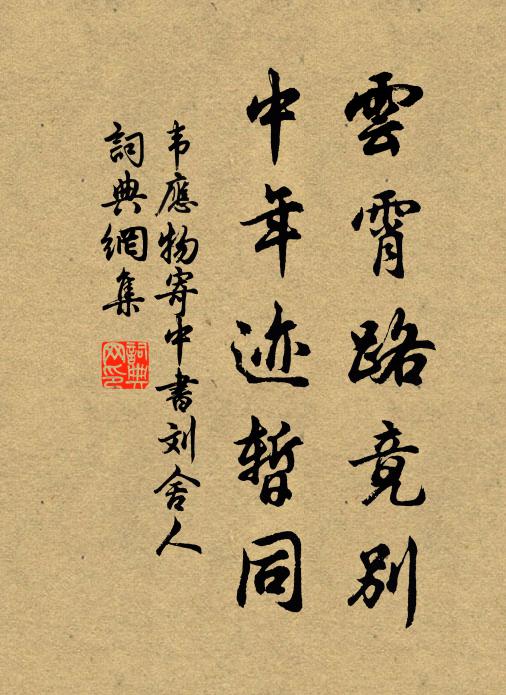 雲霄路竟别
中年迹暫同
韦應物寄中書刘舍人
詞典網集
詞典网印